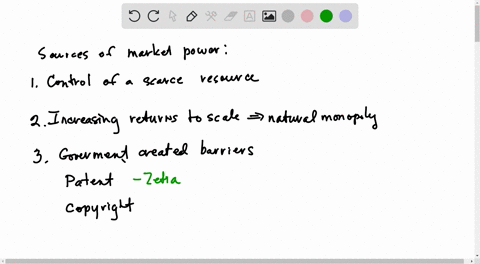 Sources of market power:
1. Control of a scarce resource
2. Increasing returns to scale ⇒ natural monopoly
3. Goverment created barriers
Patent - Zetia
Copyright